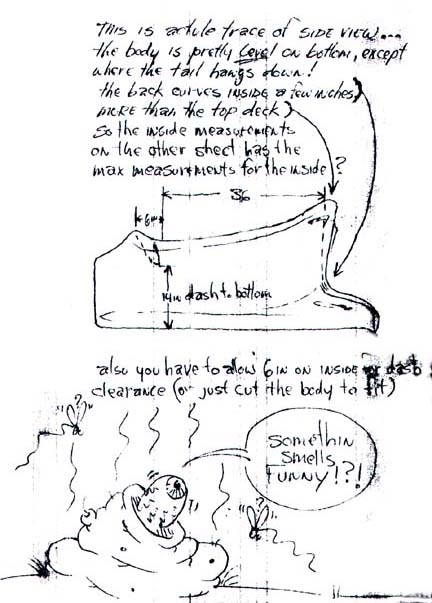 THIS IS actule trace of SIDE VIEW....
the body is pretty Level on bottom, except
where the tail hangs down!
the back curves INSIDE a few inches,)
more than the top deck)
So the inside measurements
on the other sheet has the
max measurements for the inside?
36
6in
14in dash to bottom
also you have to allow 6 in on inside for dash
clearance (or just cut the body to fit)
"?"
Somethin
Smells
Funny!?!
"?"